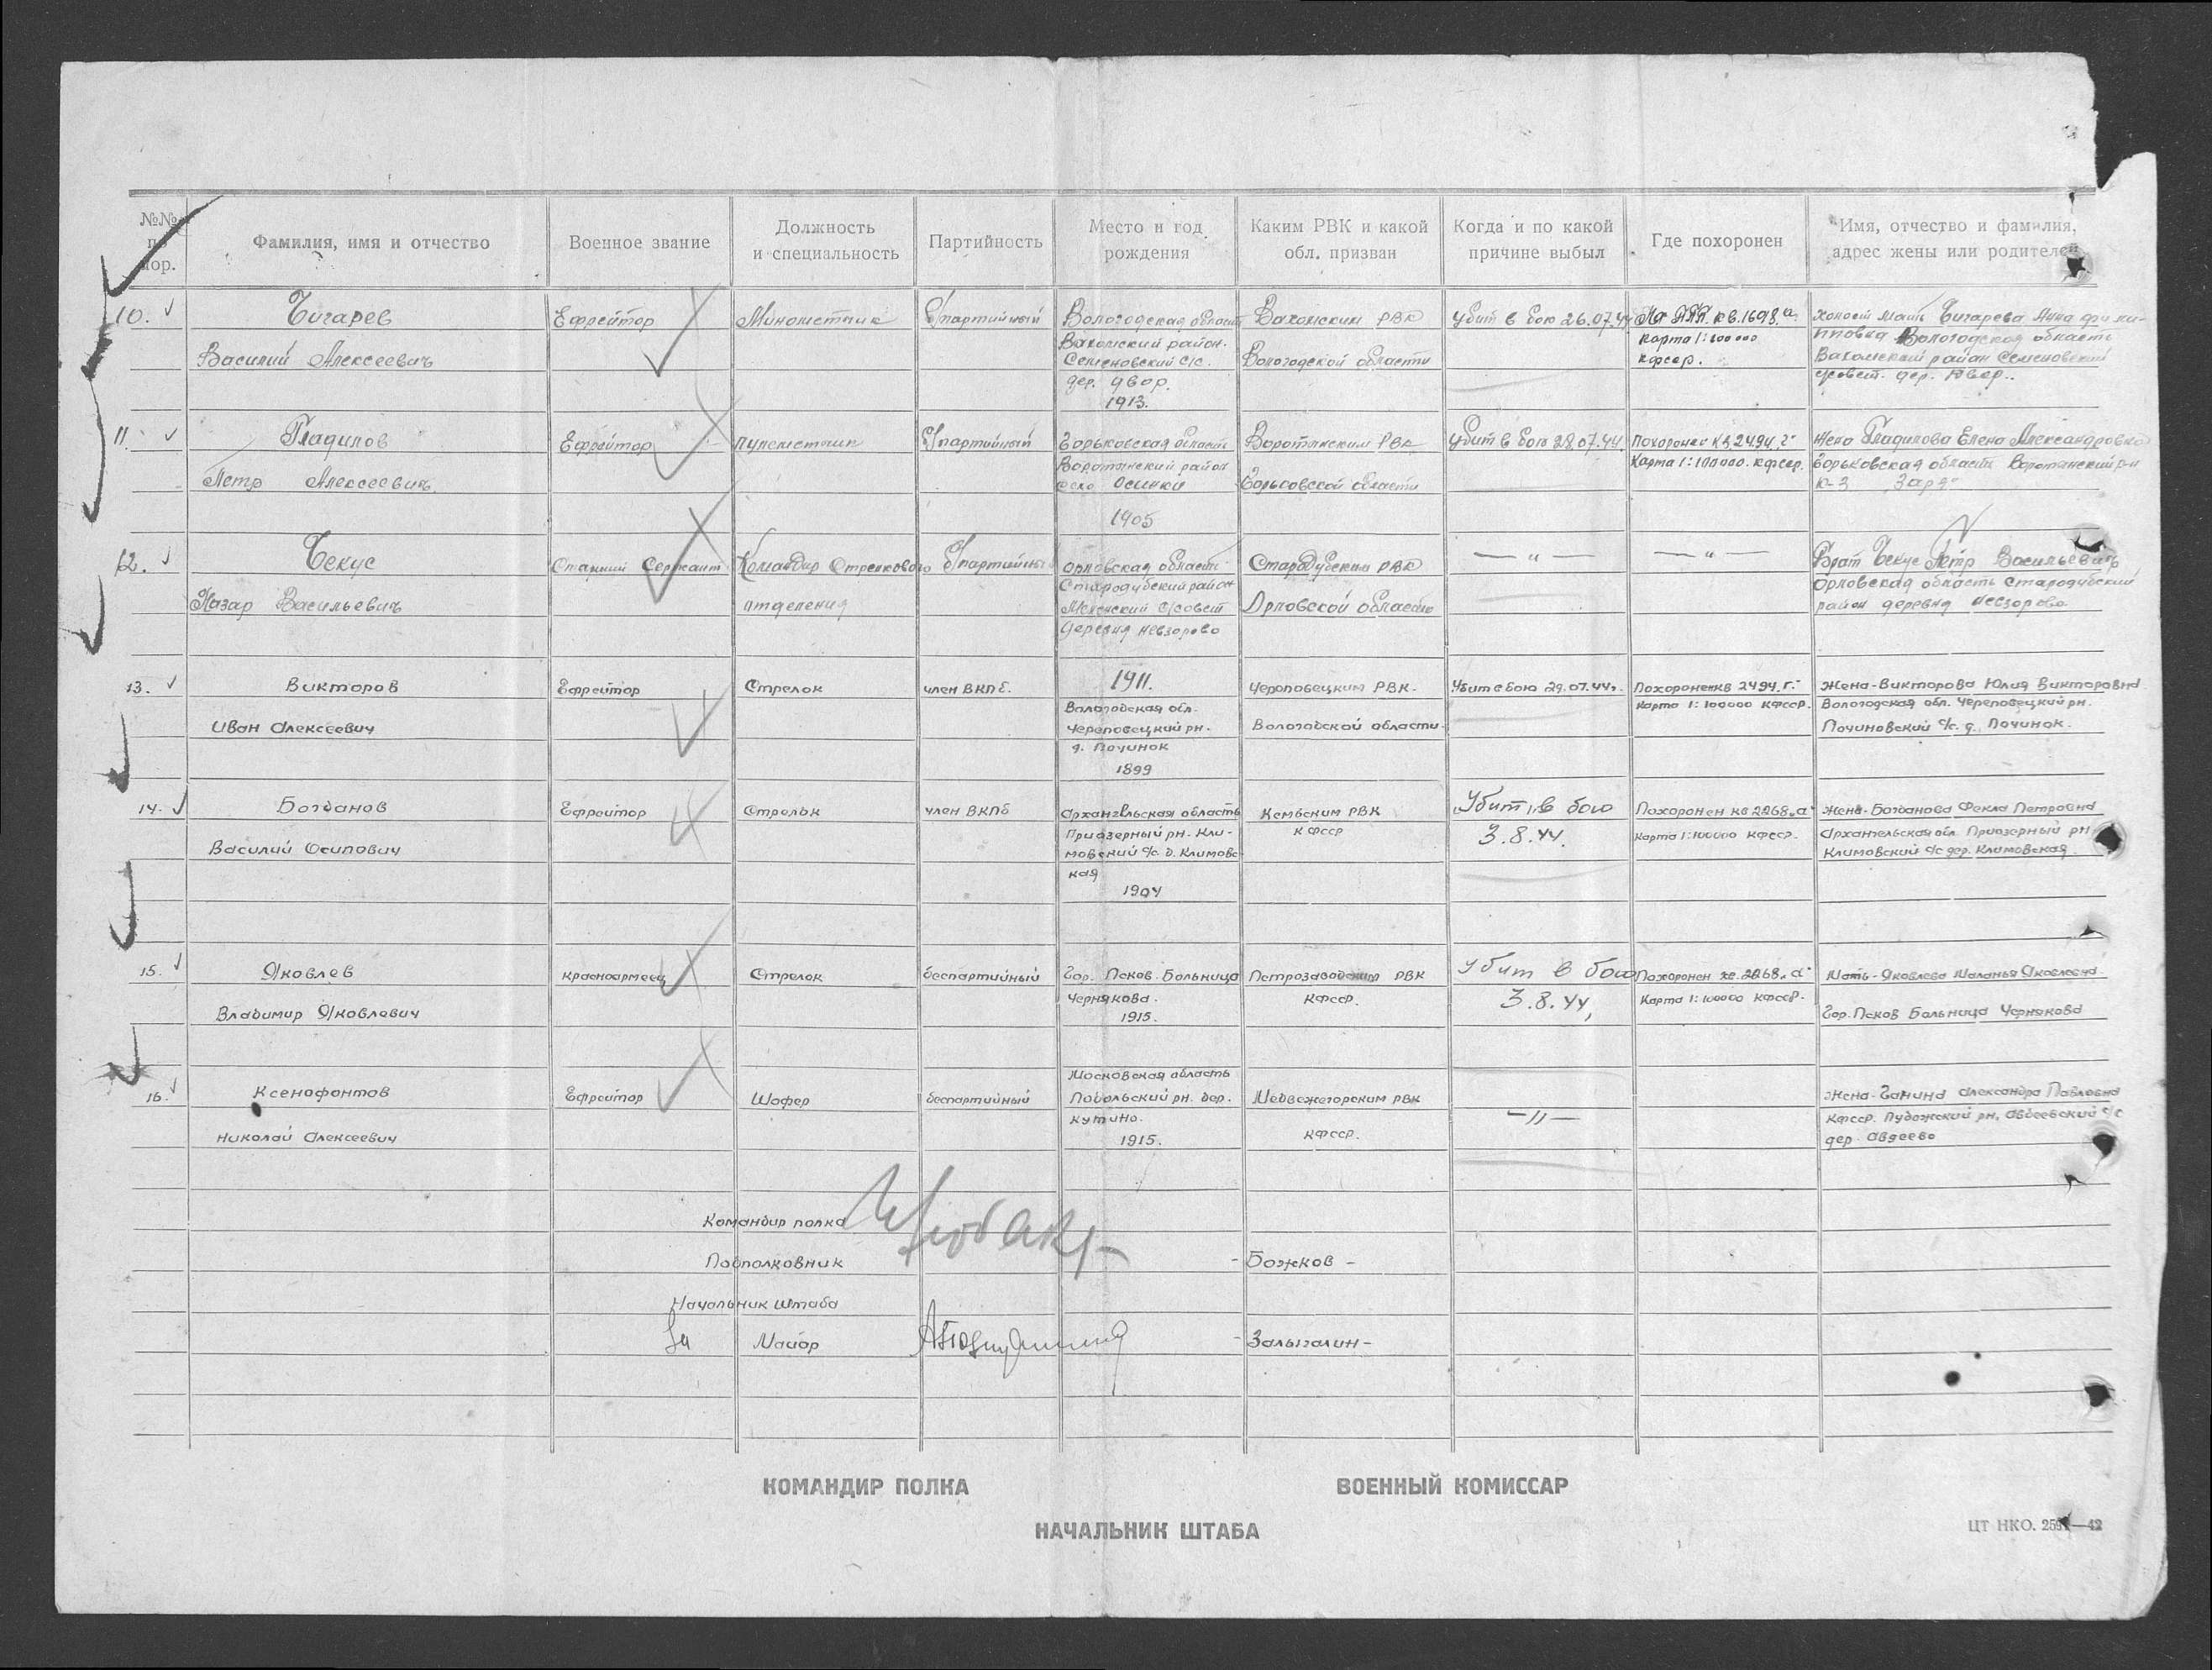 №№ по пор.
Фамилия, имя и отчество
Военное звание
Должность и специальность
Партийность
Место и год рождения
Каким РВК и какой обл. призван
Когда и по какой причине выбыл
Где похоронен
Имя, отчество и фамилия, адрес жены или родителей
10. Чигарев
Василий Алексеевич
Ефрейтор
Минометчик
б/партийный
Вологодская область
Вахомский район.
Семеновский с/с.
дер. Двор.
1913.
Вахомским РВК
Вологодской области
Убит в бою 26.07.44
кв. 1698.а
Карта 1:100000
кфсср.
Холост мать Чигарева Анна Фили-
пповна Вологодская область
Вахомский район Семеновский
с/совет. дер. Двор..
11. Гладилов
Петр Алексеевич
Ефрейтор
пулеметчик
б/партийный
Горьковская область
Воротынский район
село Осинки
1905
Воротынским РВК
Горьковской области
Убит в бою 28.07.44.
Похоронен кв 2494.г
Карта 1:100000. кфсср.
Жена Гладилова Елена Александровна
Горьковская область Воротынский р-н
к-з Заря
12. Чекус
Назар Васильевич
Старший Сержант
Командир Стрелкового
отделения
б/партийный
орловская область
Стародубский район
с/совет
деревня Невзорово
1911.
Стародубским РВК
Орловской области
— " —
— " —
Брат Чекус Петр Васильевич
Орловская область Стародубский
район деревня Невзорово
13. Викторов
Иван Алексеевич
Ефрейтор
Стрелок
член ВКПб.
Вологодская обл.
Череповецкий рн.
д. Починок
1899
Череповецким РВК.
Вологодской области.
Убит в бою 29.07.44г.
Похоронен кв 2494.г.
карта 1:100000 КФССР.
Жена-Викторова Юлия Викторовна
Вологодская обл. Череповецкий рн.
Починовский с/с. д. Починок.
14. Богданов
Василий Осипович
Ефрейтор
Стрелок
член ВКПб
Архангельская область
Приозерный рн. Кли-
мовский с/с. д. Климовс
кая
1904
Кемьским РВК
КФССР
Убит в бою
3.8.44.
Похоронен кв 2268.а
Карта 1:100000 КФССР.
Жена-Богданова Фекла Петровна
Архангельская обл. Приозерный рн
Климовский с/с дер. Климовская.
15. Яковлев
Владимир Яковлевич
красноармеец
Стрелок
беспартийный
Гор. Псков. Больница
Чернякова.
1915.
Петрозаводским РВК
КФССР.
Убит в бою
3.8.44,
Похоронен кв. 2268.а
Карта 1:100000 КФССР.
Мать-Яковлева Маланья Яковлевна
Гор. Псков Больница Чернякова
16. Ксенофонтов
Николай Алексеевич
Ефрейтор
Шофер
беспартийный
Московская область
Подольский рн. дер.
Кутино.
1915.
Медвежегорским РВК
КФССР.
— " —
Жена-Ганина Александра Павловна
КФССР. Пудожский рн, Авдеевский с/с
дер. Авдеево
Командир полка
Подполковник - Божков -
Начальник штаба
За Майор - Залыгалин -
КОМАНДИР ПОЛКА ВОЕННЫЙ КОМИССАР
НАЧАЛЬНИК ШТАБА
ЦТ НКО.